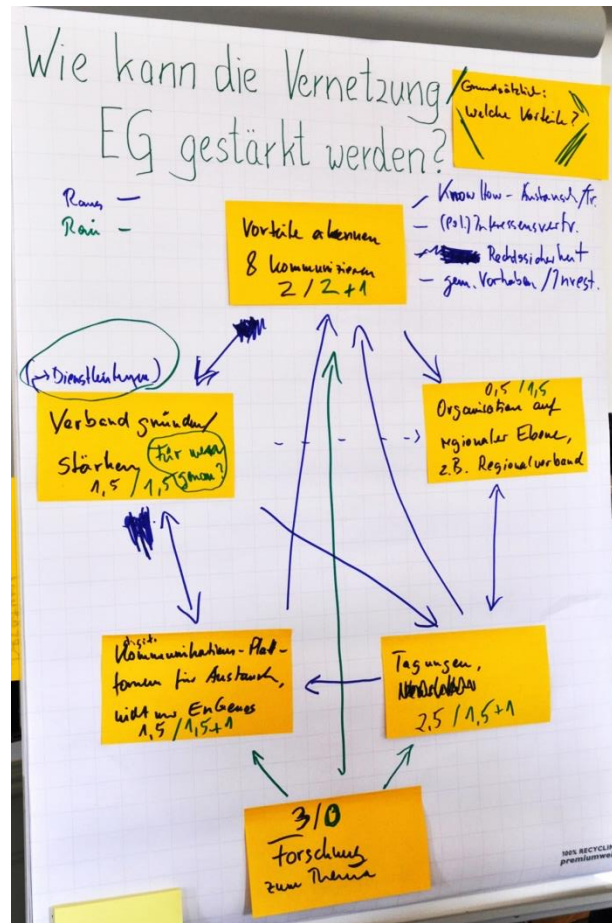 Wie kann die Vernetzung
EG gestärkt werden?
Grundsätzlich:
Welche Vorteile?
Raus –
Rein –
Vorteile erkennen
& kommunizieren
2 / 2 +1
Know How – Austausch /
– (Pol.) Interessensvertr.
– Rechtssicherheit
– gem. Vorhaben / Invest.
(→ Dienstleistungen)
Verband gründen /
stärken für wen
1,5 / 1,5 genau?
0,5 / 1,5
Organisation auf
regionaler Ebene,
z.B. Regionalverband
digit.
Kommunikations-Platt-
formen für Austausch,
nicht nur EnGenos
1,5 / 1,5 +1
Tagungen,
2,5 / 1,5 +1
3/0
Forschung
zum Thema
100% RECYCLIN
premiumwe